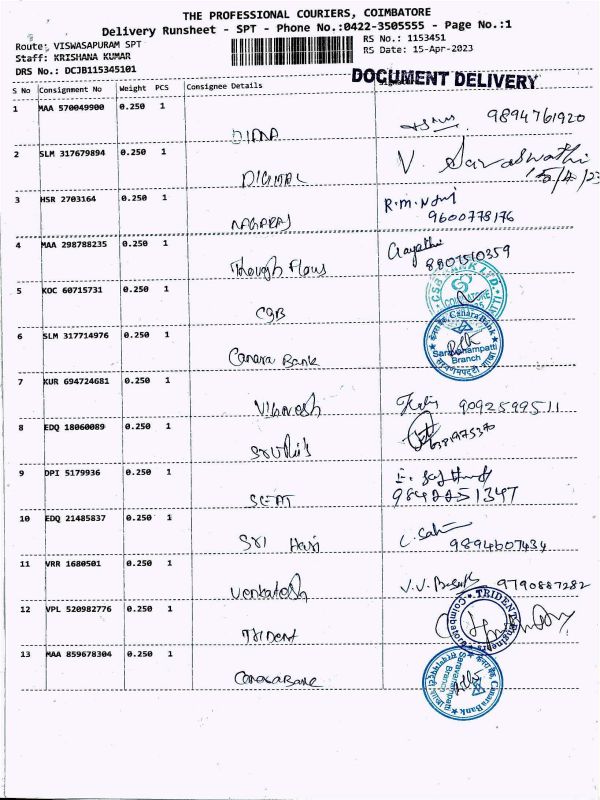 THE PROFESSIONAL COURIERS, COIMBATORE
Delivery Runsheet - SPT - Phone No.:0422-3505555 - Page No.:1
Route: VISWASAPURAM SPT RS No.: 1153451
Staff: KRISHANA KUMAR RS Date: 15-Apr-2023
DRS No.: DCJB115345101 DOCUMENT DELIVERY
S No Consignment No Weight PCS Consignee Details
1 MAA 570049900 0.250 1
DIANA 9894761920
2 SLM 317679894 0.250 1
DIGITAL V. Saraswathi
15/4/23
3 HSR 2703164 0.250 1
NAGARAJ R.M. 9600778176
4 MAA 298788235 0.250 1
Though Flows Gayathri
5 KOC 60715731 0.250 1
CSB CSB BANK LTD.
6 SLM 317714976 0.250 1
Canara Bank Canara Bank Saravanampatti Branch
7 KUR 694724681 0.250 1
Vignesh 9092599511
8 EDQ 18060089 0.250 1
9 DPI 5179936 0.250 1
SEAT 9842251347
10 EDQ 21485837 0.250 1
SRI Hari 9894607434
11 VRR 1680501 0.250 1
Venkatesh V.V. 9790887282
12 VPL 520982776 0.250 1
TRIDENT TRIDENT Engineers Coimbatore
13 MAA 859678304 0.250 1
Canara Bank Canara Bank Saravanampatti Branch